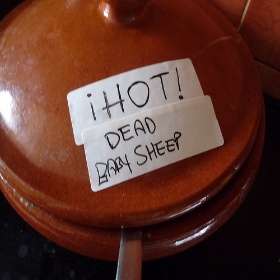 ¡HOT!
DEAD
BABY SHEEP